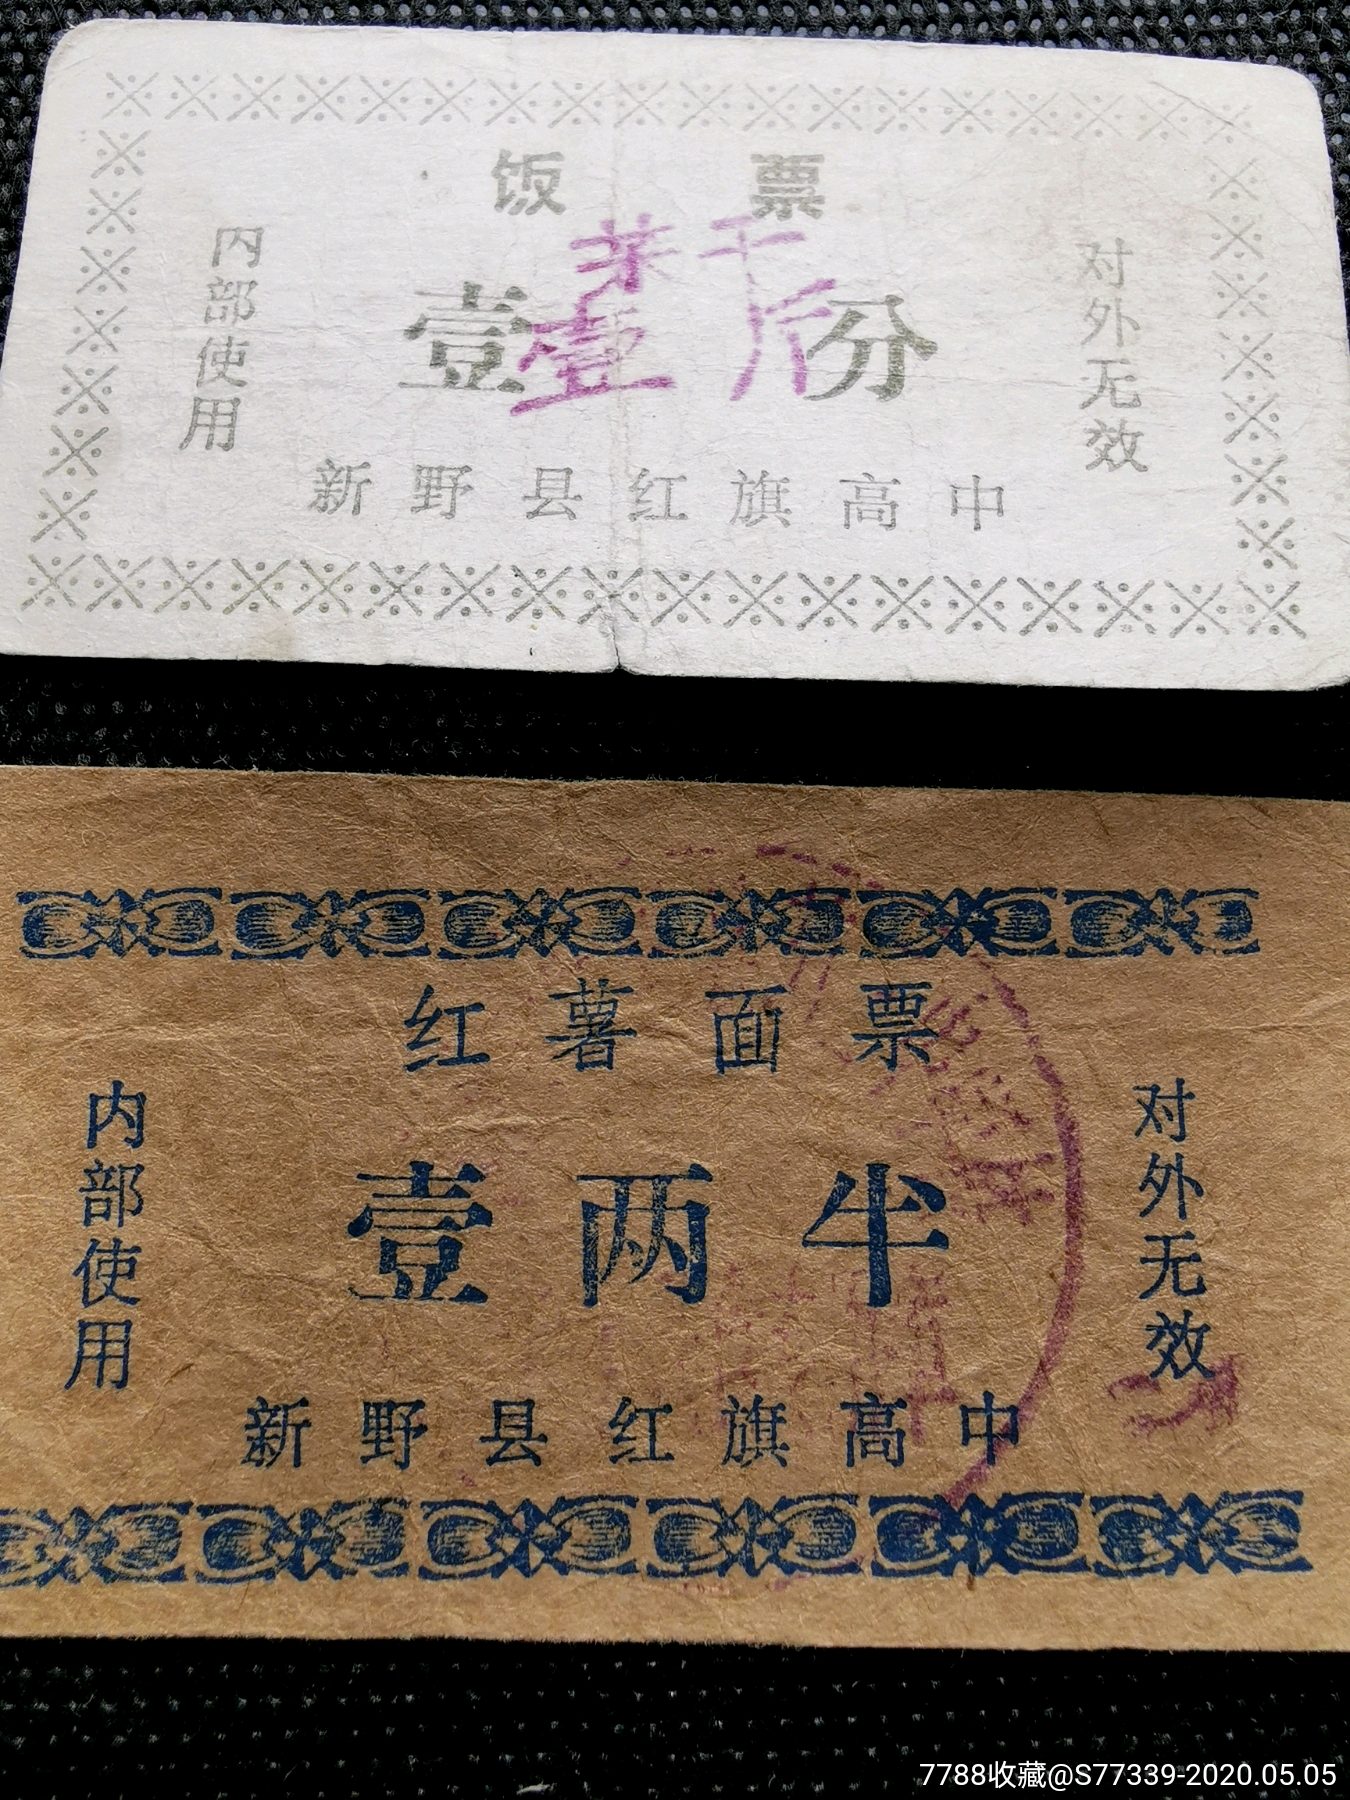 饭票
菜干
壹分
壹斤
内部使用
对外无效
新野县红旗高中
红薯面票
内部使用
对外无效
壹两半
新野县红旗高中
7788收藏@S77339-2020.05.05